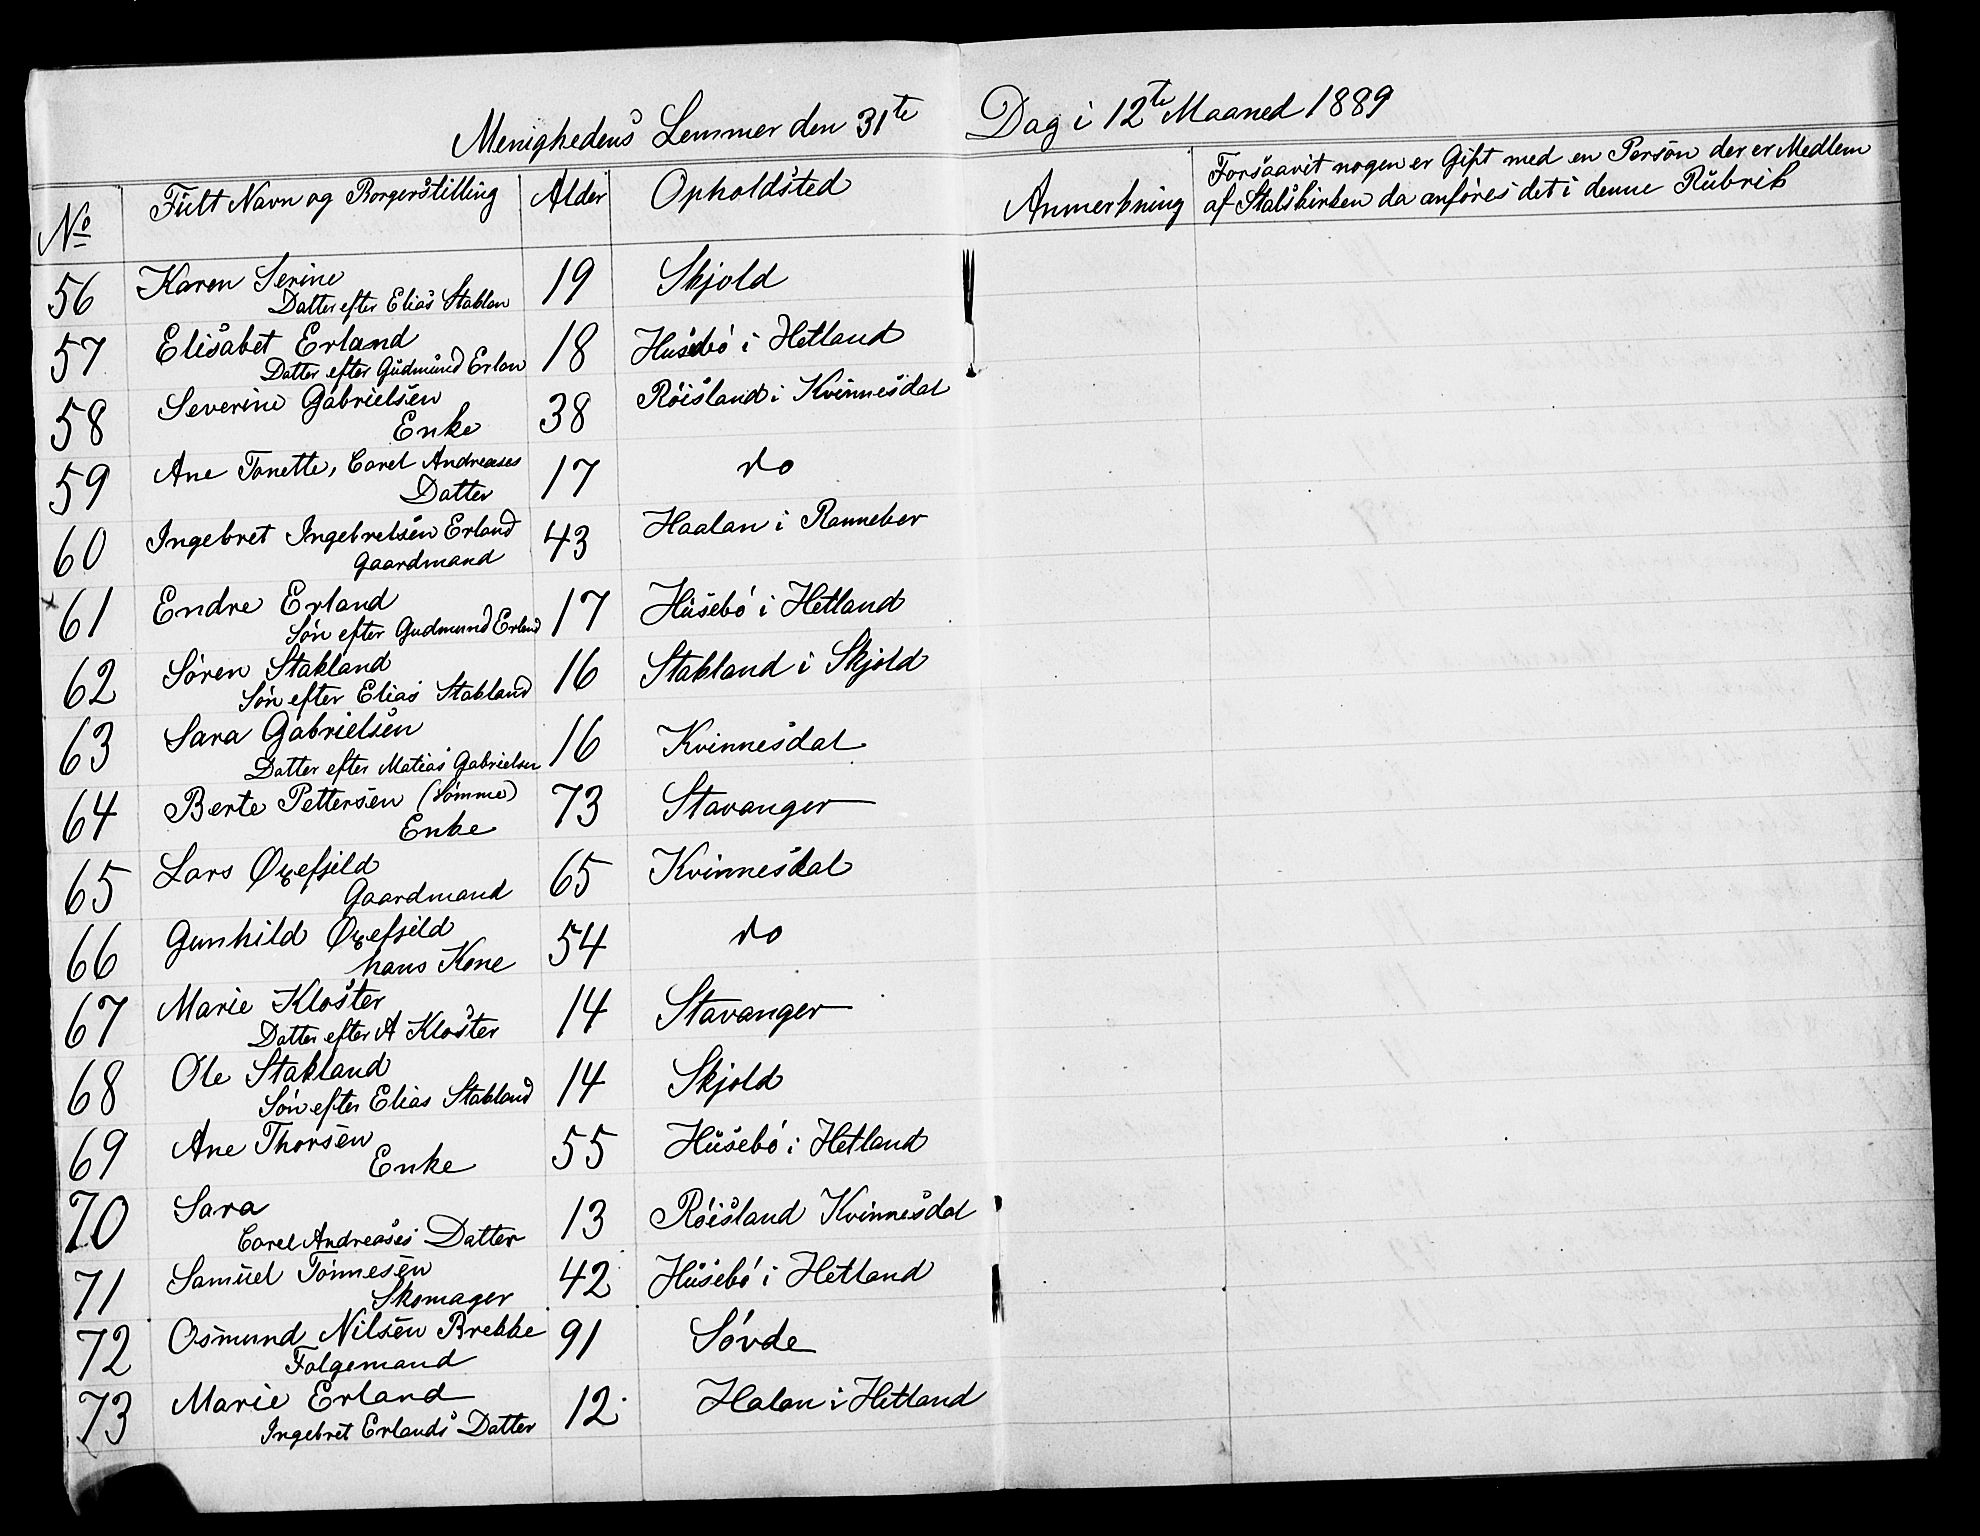 Menighedens Lemmer den 31te Dag i 12te Maaned 1889
No Fult Navn og Borgerstilling Alder Opholdsted Anmerkning Forsaavit nogen er Gift med en Person der er Medlem
af Statskirken da anføres det i denne Rubrik
56 Karen Serine 19 Skjold
Datter efter Elias Staklan
57 Elisabet Erland 18 Husebø i Hetland
Datter efter Gudmund Erlan
58 Severine Gabrielsen 38 Røisland i Kvinnesdal
Enke
59 Ane Tonette, Carel Andreases 17 do
Datter
60 Ingebret Ingebretsen Erland 43 Haalan i Ranneber
Gaardmand
x 61 Endre Erland 17 Husebø i Hetland
Søn efter Gudmund Erland
62 Søren Stakland 16 Stakland i Skjold
Søn efter Elias Stakland
63 Sara Gabrielsen 16 Kvinnesdal
Datter efter Matias Gabrielsen
64 Berte Pettersen (Sømme) 73 Stavanger
Enke
65 Lars Øyefjeld 65 Kvinnesdal
Gaardmand
66 Gunhild Øyefjeld 54 do
hans Kone
67 Marie Kloster 14 Stavanger
Datter efter A Kloster
68 Ole Stakland 14 Skjold
Søn efter Elias Stakland
69 Ane Thorsen 55 Husebø i Hetland
Enke
70 Sara 13 Røisland Kvinnesdal
Carel Andreases Datter
71 Samuel Tønnesen 42 Husebø i Hetland
Skomager
72 Osmund Nilsen Brekke 91 Søvde
Folgemand
73 Marie Erland 12 Halan i Hetland
Ingebret Erlands Datter